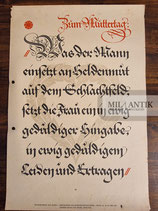 Zum Muttertag:
Was der Mann
einsetzt an Heldenmut
auf dem Schlachtfeld,
setzt die Frau ein in ewig
geduldiger Hingabe,
in ewig geduldigem
Leiden und Ertragen
MIL ANTIK